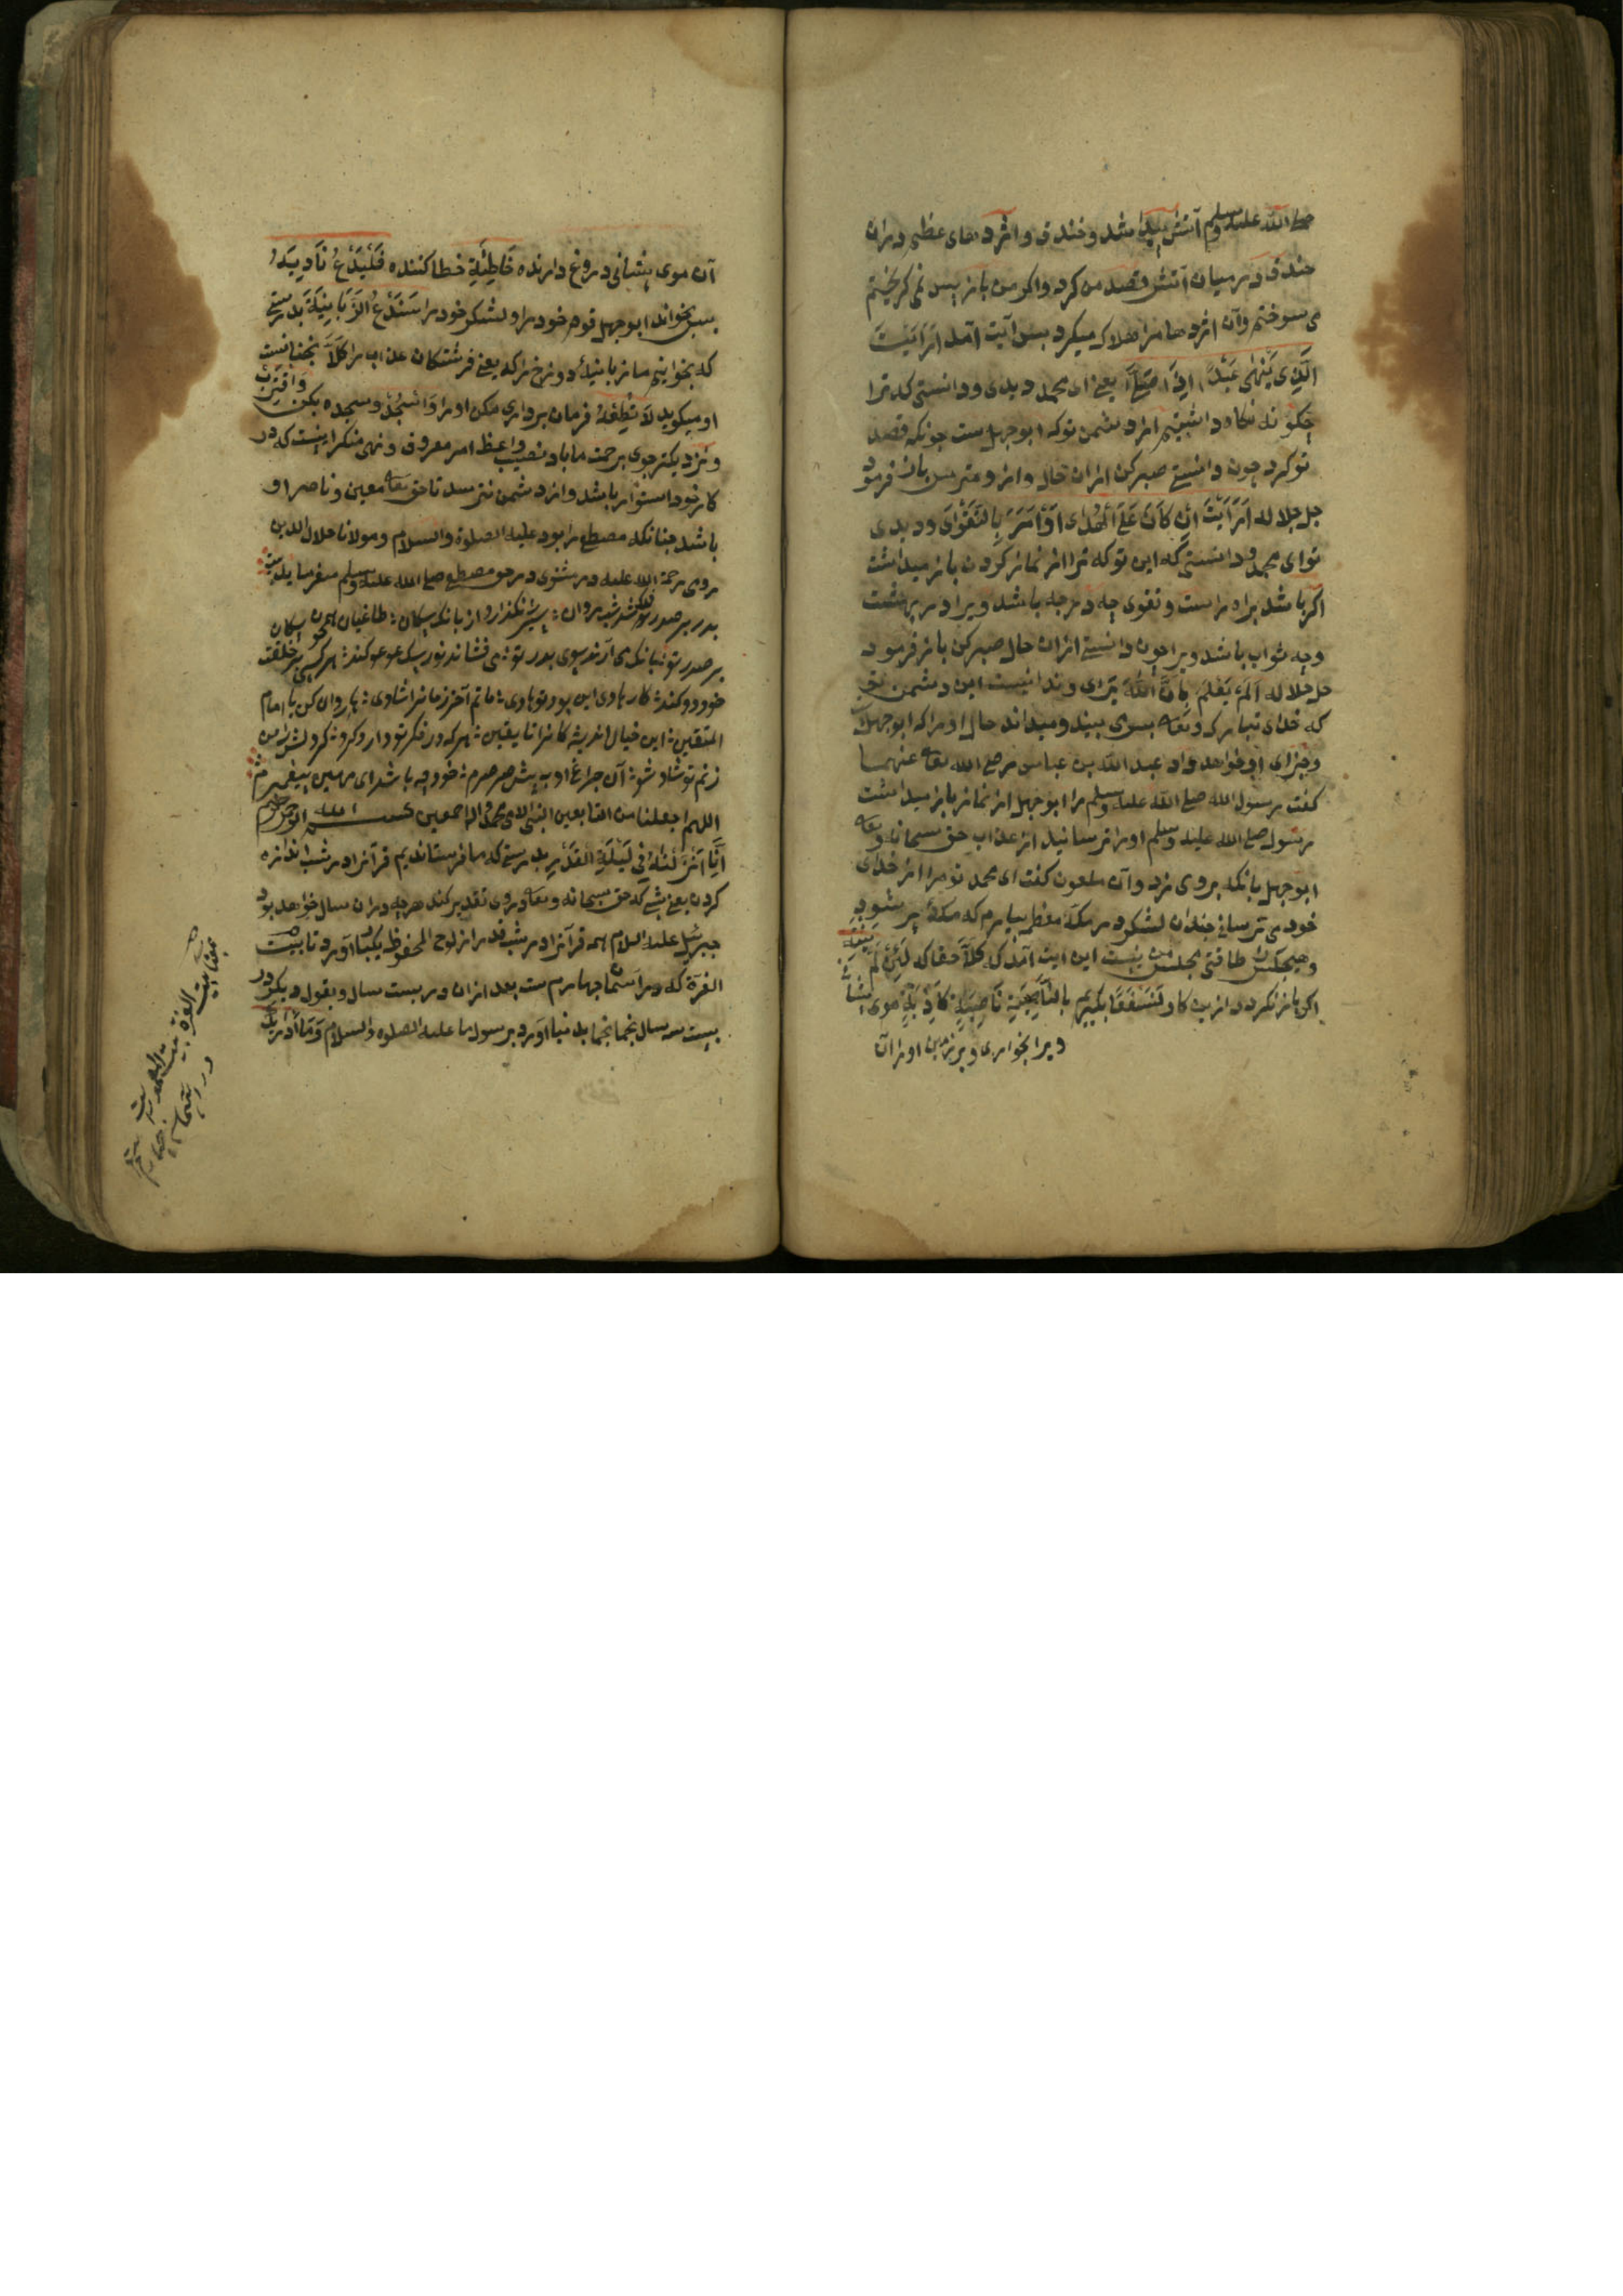 صلی الله علیه وسلم آتش پیدا شد و خندق و اژدهای عظیم دران
خندق در میان آتش قصد من کرد واکر من باز پس نمی کریختم
می سوختم وآن اژدها مرا هلاک میکرد بس آیت آمد اَرَاَیْتَ
الَّذِی یَنْهٰی عَبْدًا اِذَا صَلّٰی یعنی ای محمد دیدی ودانستی که ترا
چکونه نکاه داشتیم از دشمن تو که ابوجهل ست چونکه قصد
تو کرد چون دانستی صبر کن ازان حال واز و مترس باز فرمود
جل جلاله اَرَاَیْتَ اِنْ کَانَ عَلَی الْهُدٰی اَوْ اَمَرَ بِالتَّقْوٰی ودیدی
تو ای محمد ودانستی که این تو که ترا از نماز کردن باز میداشت
اکر باشد براه راست وتقوی چه درجه باشد ویرا در بهشت
وچه ثواب باشد ویرا چون دانستی ازان حال صبر کن باز فرمود
جل جلاله اَلَمْ یَعْلَمْ بِاَنَّ اللّٰهَ یَرٰی وندانست این دشمن تو
که خدای تبارک وتعالی بسوی بیند ومیداند حال او را که ابوجهل
وجزای او خواهد داد عبد الله بن عباس رضی الله تعالی عنهما
کفت رسول الله صلی الله علیه وسلم را ابوجهل از نماز باز میداشت
رسول صلی الله علیه وسلم او را ترسانید از عذاب حق سبحانه وتعالی
ابوجهل بانکه بروی زد وآن ملعون کفت ای محمد تو مرا از خدای
خود می ترسانی چندان لشکر در مکه معظمه بیارم که مکه پر شود
وهیچکس را طاقتی مجلس من نیست این آیت آمد که کَلَّا حقا که لَئِنْ لَمْ یَنْتَهِ
اکر باز نکردد ازین کار لَنَسْفَعًا بکیریم بِالنَّاصِیَةِ نَاصِیَةٍ کَاذِبَةٍ موی پیشانی
ویرا بخواری وبر زمین او را آن
آن موی پیشانی دروغ دارنده خَاطِئَةٍ خطا کننده فَلْیَدْعُ نَادِیَهُ
بس بخواند ابوجهل قوم خود را ولشکر خود را سَنَدْعُ الزَّبَانِیَةَ بدرستی
که بخوانیم ما زبانیهٔ دوزخ را که یعنی فرشتکان عذاب را کَلَّا نچنانست
او میکوید لَا تُطِعْهُ فرمان برداری مکن او را وَاسْجُدْ وسجده بکن وَاقْتَرِبْ
ونزدیکتر جوی برحمت ما باد نصیب واعظ امر معروف ونهی منکر اینست که در
کار خود استوار باشد واز دشمن نترسد تا حق تعالی معین وناصر او
باشد چنانکه مصطفی را بود علیه الصلوة والسلام ومولانا جلال الدین
رومی رحمة الله علیه در مثنوی در حق مصطفی صلی الله علیه وسلم میفرماید بیت
بدر بر صدر فلک شد شب روان ؛ سیر نکذارد از بانک سکان ؛ طاغیان همچون سکان
بر صدر تو ؛ بانک می آرند سوی بدر تو ؛ می فشاند نور سک عوعو کند ؛ هر کسی بر خلقت
خود دو کند ؛ کار هادی این بود تو هادی ؛ ماتم آخر زمانرا شادی ؛ هین روان کن یا امام
المتقین ؛ این خیال اندیشه کانرا تا یقین ؛ هر که در مکر تو دارد کرو ؛ کردنش را من
زنم تو شاد شو ؛ آن چراغ او به پیش صرصرم ؛ خود چه باشد ای مهین پیغمبرم
اللهم اجعلنا من التابعین النبی الامی محمد واله اجمعین بسم الله الرحمن الرحیم
اِنَّا اَنْزَلْنَاهُ فِی لَیْلَةِ الْقَدْرِ بدرستی که ما فرستادیم قرآنرا در شب اندازه
کردن یعنی شبی که حق سبحانه وتعالی دروی تقدیر کند هرچه دران سال خواهد بود
جبرئیل علیه السلام همه قرآنرا در شب قدر از لوح المحفوظ یکبار آورد تا بیت
العزة که در آسمان چهارم ست بعد ازان در بیست سال وبقول دیکر در
بیست سه سال نجما نجما بدنیا آورد برسول ما علیه الصلوة والسلام وَمَا اَدْرٰیکَ